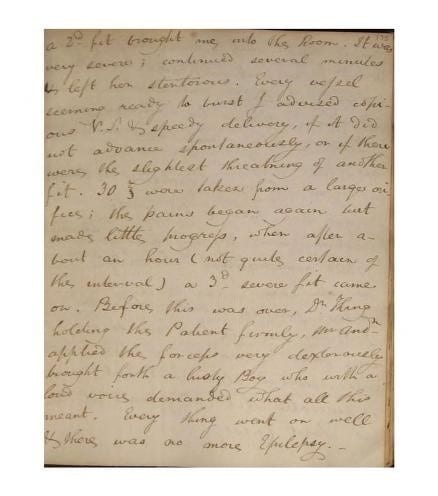 a 2d fit brought me into the Room. It was
very severe; continued several minutes
& left her stentorous. Every vessel
seeming ready to burst I advised copi-
ous V.S. & speedy delivery, if it did
not advance spontaneously, or if there
were the slightest threatning of another
fit. 30 ℥ were taken from a large ori-
fice; the pains began again but
made little progress, when after a-
bout an hour (not quite certain of
the interval) a 3d severe fit came
on. Before this was over, Dr Thing
holding the Patient firmly, Mr Andn
applied the forceps very dexterously
brought forth a lusty Boy who with a
loud voice demanded what all this
meant. Every thing went on well
& there was no more Epilepsy. –